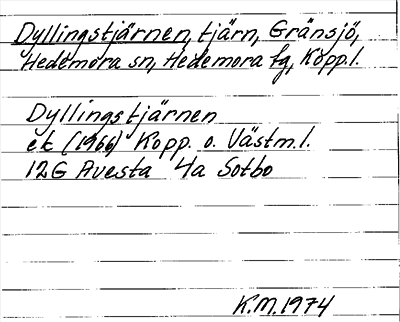 Dyllingstjärnen, tjärn, Gränsjö,
Hedemora sn, Hedemora tg, Kopp.l.
Dyllingstjärnen
ek (1966) Kopp. o. Västm.l.
12G Avesta 4a Sotbo
K.M.1974